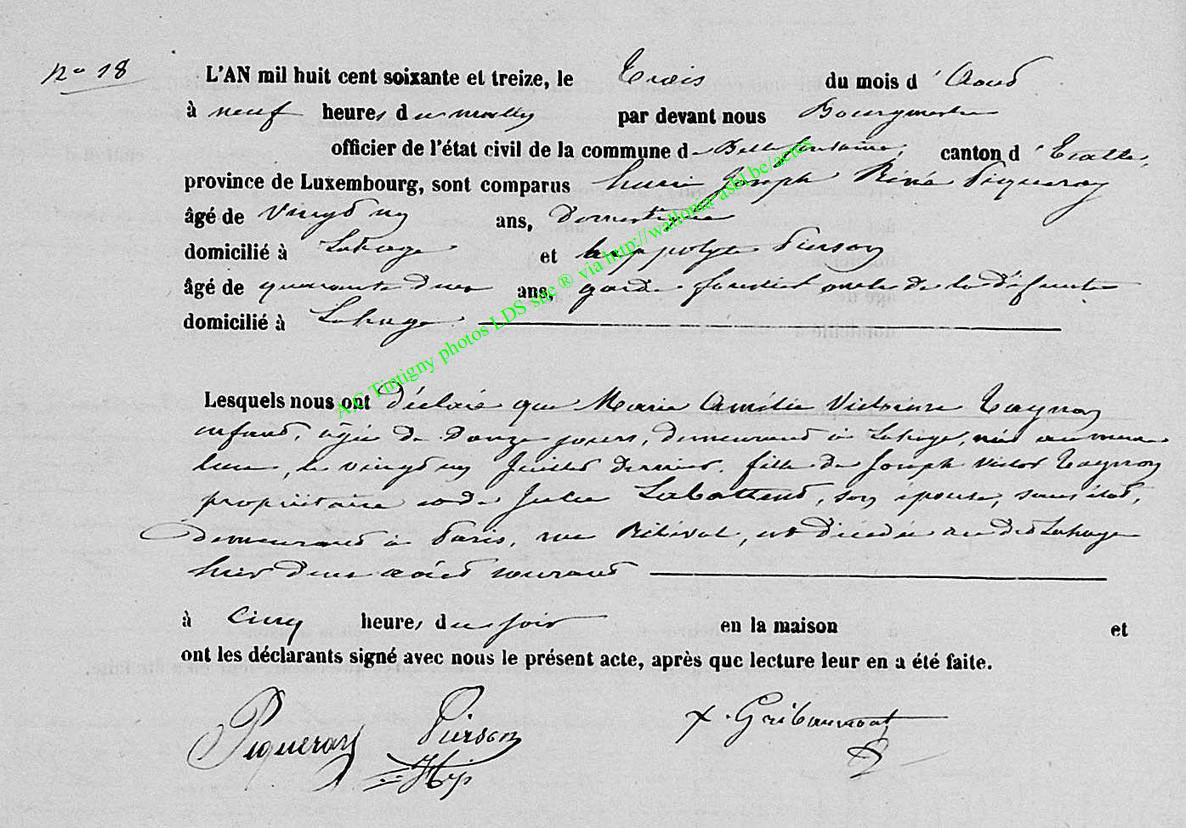 n° 18
L'AN mil huit cent soixante et treize, le Trois du mois d'Aout
à neuf heures du matin par devant nous Bourgmestre
officier de l'état civil de la commune de Bellefontaine, canton d'Etalle,
province de Luxembourg, sont comparus Joseph Piqueray
âgé de vingt un ans, Domestique
domicilié à Lahage et hippolyte Pierson
âgé de quarante deux ans, garde forestier oncle de la défunte
domicilié à Lahage
Lesquels nous ont déclaré que Marie Amélie Victorine Taynon
enfant, âgée de Douze jours, demeurant à Lahage, née au même
lieu, le vingt un Juillet dernier, fille de Joseph Victor Taynon
propriétaire et de Julie, son épouse, sans état,
Demeurant à Paris, rue Rébeval, est décédée au dit Lahage
hier deux août courant
à Cinq heures du soir en la maison et
ont les déclarants signé avec nous le présent acte, après que lecture leur en a été faite.
Piqueray Pierson Hip x. Gribaumont
A.C Tintigny photos LDS site ® via http://wallonia-asbl.be/actes